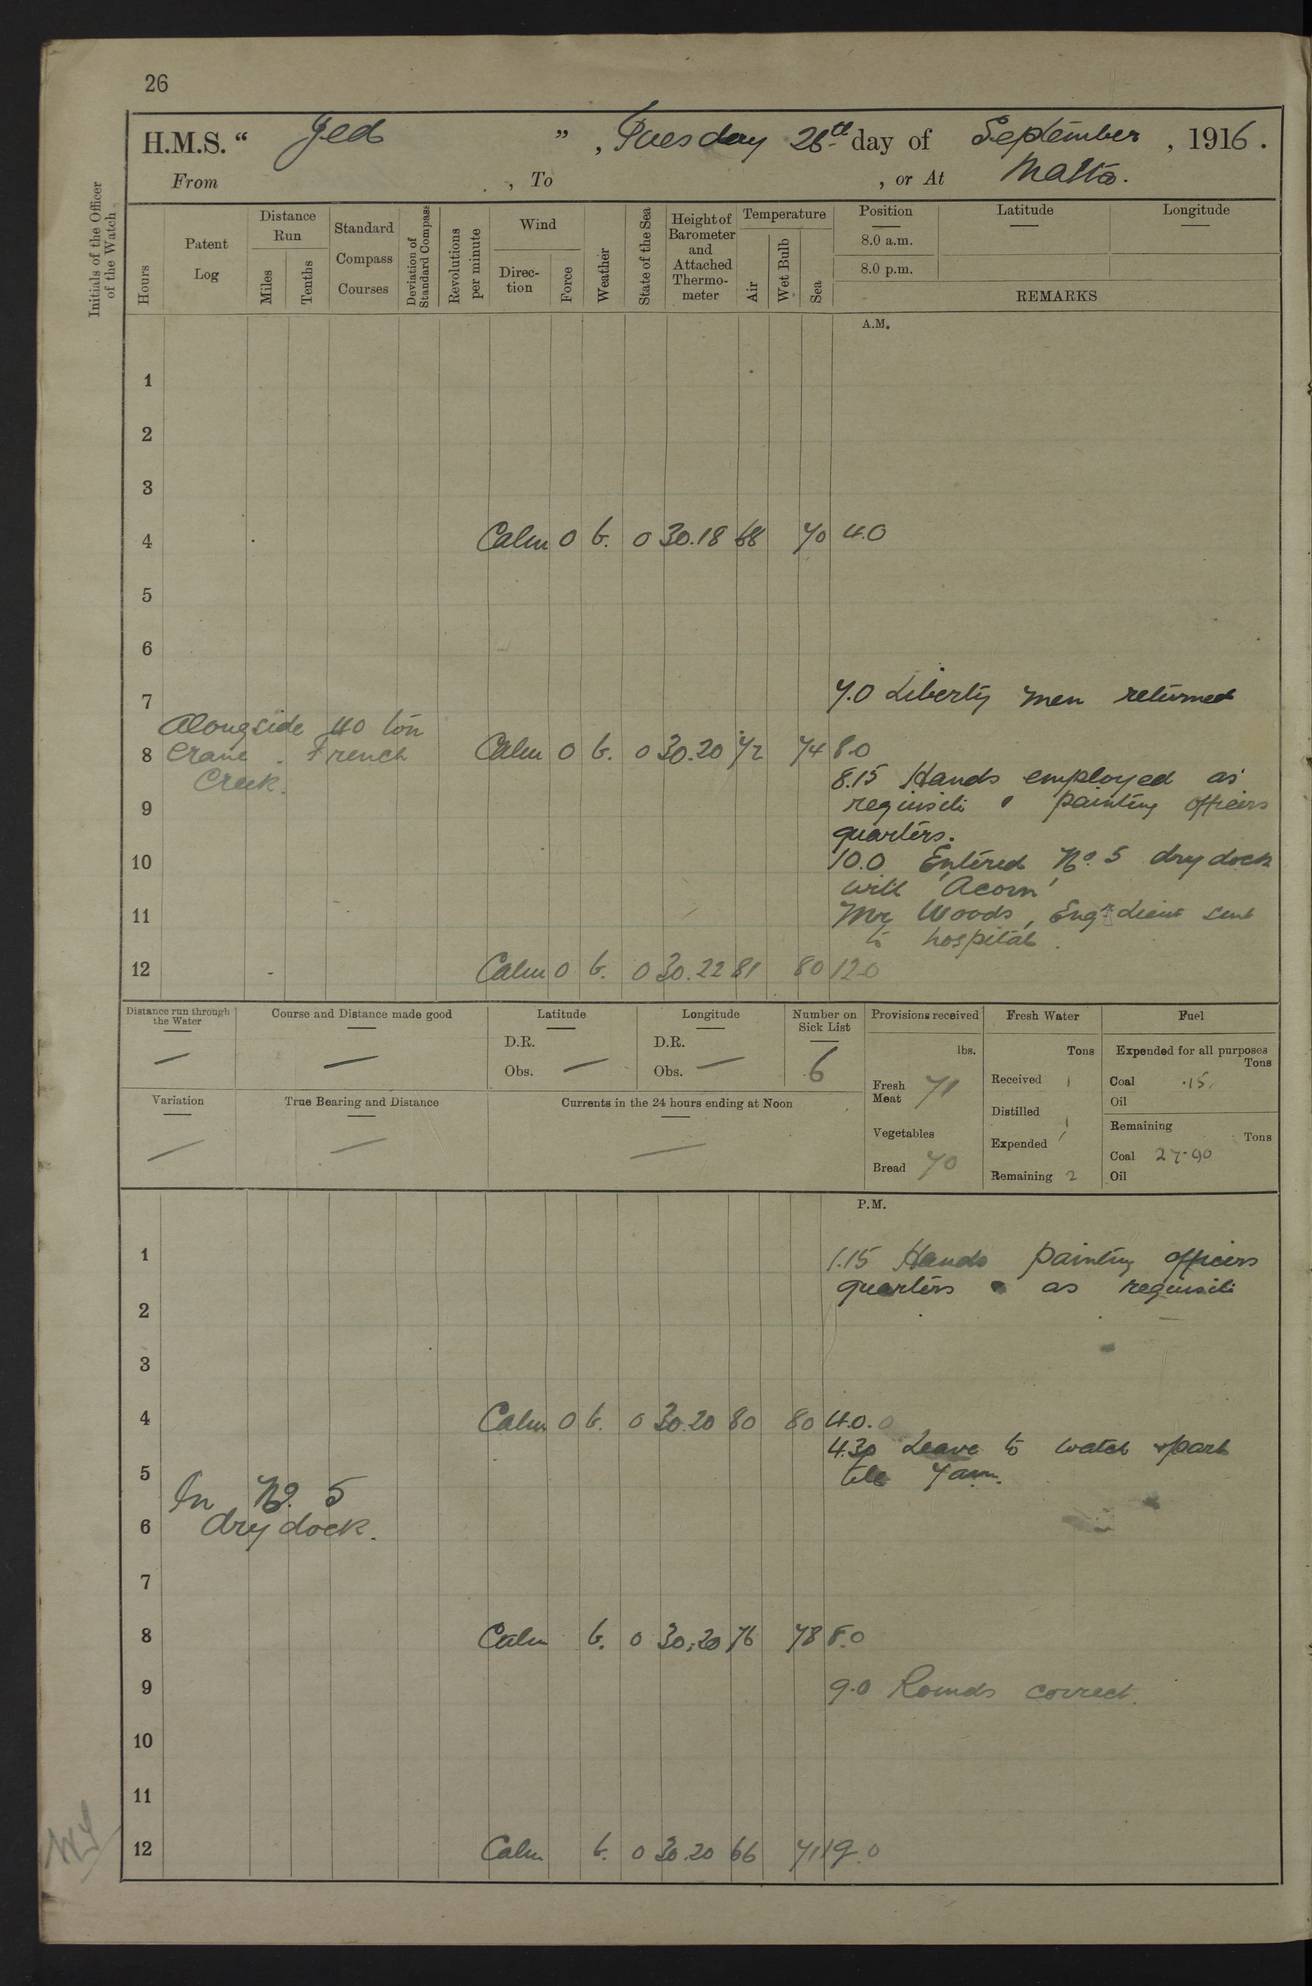 26
H.M.S. “ Jed ” , Tuesday 26th day of September , 1916 .
From , To , or At Malta.
Initials of the Officer of the Watch
Hours
Patent Log
Distance Run
Miles
Tenths
Standard Compass Courses
Deviation of Standard Compass
Revolutions per minute
Wind
Direction
Force
Weather
State of the Sea
Height of Barometer and Attached Thermometer
Temperature
Air
Wet Bulb
Sea
Position
Latitude
Longitude
8.0 a.m.
8.0 p.m.
REMARKS
A.M.
1
2
3
4 Calm 0 b. 0 30.18 68 70 4.0
5
6
7 7.0 Liberty men returned
Alongside 40 ton
8 Crane . French Calm 0 b. 0 30.20 72 74 8.0
Creek. 8.15 Hands employed as
9 requisite & painting officers
quarters.
10 10.0 Entered No. 5 dry dock
with 'Acorn'
11 Mr Woods, Engr Lieut sent
to hospital.
12 Calm 0 b. 0 30.22 81 80 12.0
Distance run through the Water
Course and Distance made good
Latitude
D.R.
Obs. —
Longitude
D.R.
Obs. —
Number on Sick List
6
Provisions received
lbs.
Fresh Meat 71
Vegetables
Bread 70
Fresh Water
Tons
Received 1
Distilled
Expended 1
Remaining 2
Fuel
Expended for all purposes
Tons
Coal .15
Oil
Remaining
Tons
Coal 27.90
Oil
Variation
True Bearing and Distance
Currents in the 24 hours ending at Noon
P.M.
1 1.15 Hands painting officers
quarters & as requisite
2
3
4 Calm 0 b. 0 30.20 80 80 4.0
4.30 Leave to watch & part
5 till 7 am.
In No. 5
6 dry dock.
7
8 Calm b. 0 30.20 76 78 8.0
9 9.0 Rounds correct.
10
11
12 Calm b. 0 30.20 66 71 12.0